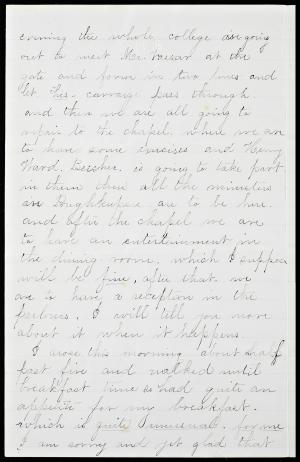 evening the whole college are going
out to meet Mr. Vassar at the
gate and form in two lines and
let his carriage pass through
and then we are all going to
repair to the chapel where we are
to have some exercises and Henry
Ward Beecher is going to take part
in them then all the ministers
in Poughkeepsie are to be here
and after the chapel we are
to have an entertainment in
the dining room, which I suppose
will be fine, after that we
are to have a reception in the
parlors. I will tell you more
about it when it happens.
I arose this morning about half
past five and walked until
breakfast time so had quite an
appetite for my breakfast.
which is quite unusual for me
I am sorry and yet glad that